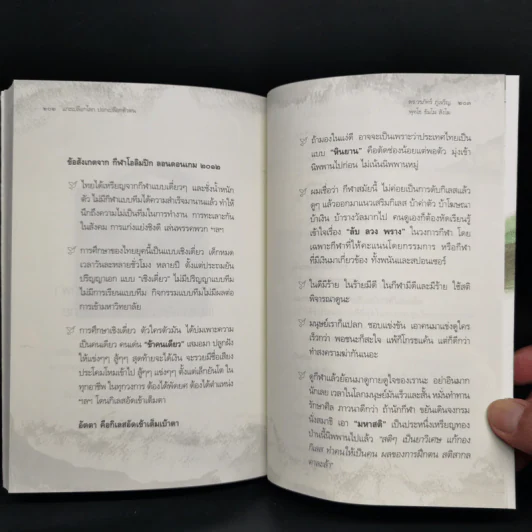 ๒๐๒
ข้อสังเกตจาก กีฬาโอลิมปิก ลอนดอนเกม ๒๐๑๒
ไทยได้เหรียญจากกีฬาแบบเดี่ยวๆ และชั่งน้ำหนัก
ตัว ไม่มีกีฬาแบบทีมได้ความสำเร็จมานานแล้ว ทำให้
นึกถึงความไม่เป็นทีมในการทำงาน การทะเลาะกัน
ในสังคม การแก่งแย่งชิงดี เล่นพรรคพวก ฯลฯ
การศึกษาของไทยยุคนี้เป็นแบบเชิงเดี่ยว เด็กหมด
เวลาวันละหลายชั่วโมง หลายปี ตั้งแต่ประถมยัน
ปริญญาเอก แบบ "เชิงเดี่ยว" ไม่มีปริญญาแบบทีม
ไม่มีการเรียนแบบทีม กิจกรรมแบบทีมไม่มีผลต่อ
การเข้ามหาวิทยาลัย
การศึกษาเชิงเดี่ยว ตัวใครตัวมัน ได้บ่มเพาะความ
เป็นคนเดียว คนเด่น "ข้าคนเดียว" เสมอมา ปลูกฝัง
ให้แข่งๆๆ สู้ๆๆ สุดท้ายจะได้เงิน จะรวยมีชื่อเสียง
ประโคมโหมเข้าไป สู้ๆๆ แข่งๆๆ ตั้งแต่เล็กยันโต ใน
ทุกอาชีพ ในทุกวงการ ต้องได้ทัดยศ ต้องได้ตำแหน่ง
ฯลฯ โดนกิเลสอัดเข้าเต็มตา
อัตตา คือกิเลสอัดเข้าเต็มเบ้าตา
๒๐๓
พุทโธ ธัมโม สังโฆ
ถ้ามองในแง่ดี อาจจะเป็นเพราะว่าประเทศไทยเป็น
แบบ "หินยาน" คือตัดช่องน้อยแต่พอตัว มุ่งเข้า
นิพพานไปก่อน ไม่เน้นนิพพานหมู่
ผมเชื่อว่า กีฬาสมัยนี้ ไม่ค่อยเป็นการดับกิเลสแล้ว
ดูๆ แล้วออกมาแนวเสริมกิเลส บ้าค่าตัว บ้าโฆษณา
บ้าเงิน บ้ารางวัลมากไป คนดูเองก็ต้องหัดเรียนรู้
เข้าใจเรื่อง "ลับ ลวง พราง" ในวงการกีฬา โดย
เฉพาะกีฬาที่ให้คะแนนโดยกรรมการ หรือกีฬา
ที่มีเงินมาเกี่ยวข้อง ทั้งพนันและสปอนเซอร์
ในดีมีร้าย ในร้ายมีดี ในกีฬามีดีและมีร้าย ใช้สติ
พิจารณาดูนะ
มนุษย์เราก็แปลก ชอบแข่งขัน เอาคนมาแข่งดูใคร
เร็วกว่า พอชนะก็สะใจ แพ้ก็โกรธแค้น แต่ก็ดีกว่า
ทำสงครามฆ่ากันเนอะ
ดูกีฬาแล้วย้อนมาดูกายดูใจของเรานะ อย่าอินมาก
นักเลย เวลาในโลกมนุษย์มันเร็วและสั้น หมั่นทำทาน
รักษาศีล ภาวนาดีกว่า ถ้านักกีฬา ขยันเดินจงกรม
นั่งสมาธิ เอา "มหาสติ" เป็นประหนึ่งเหรียญทอง
ป่านนี้นิพพานไปแล้ว